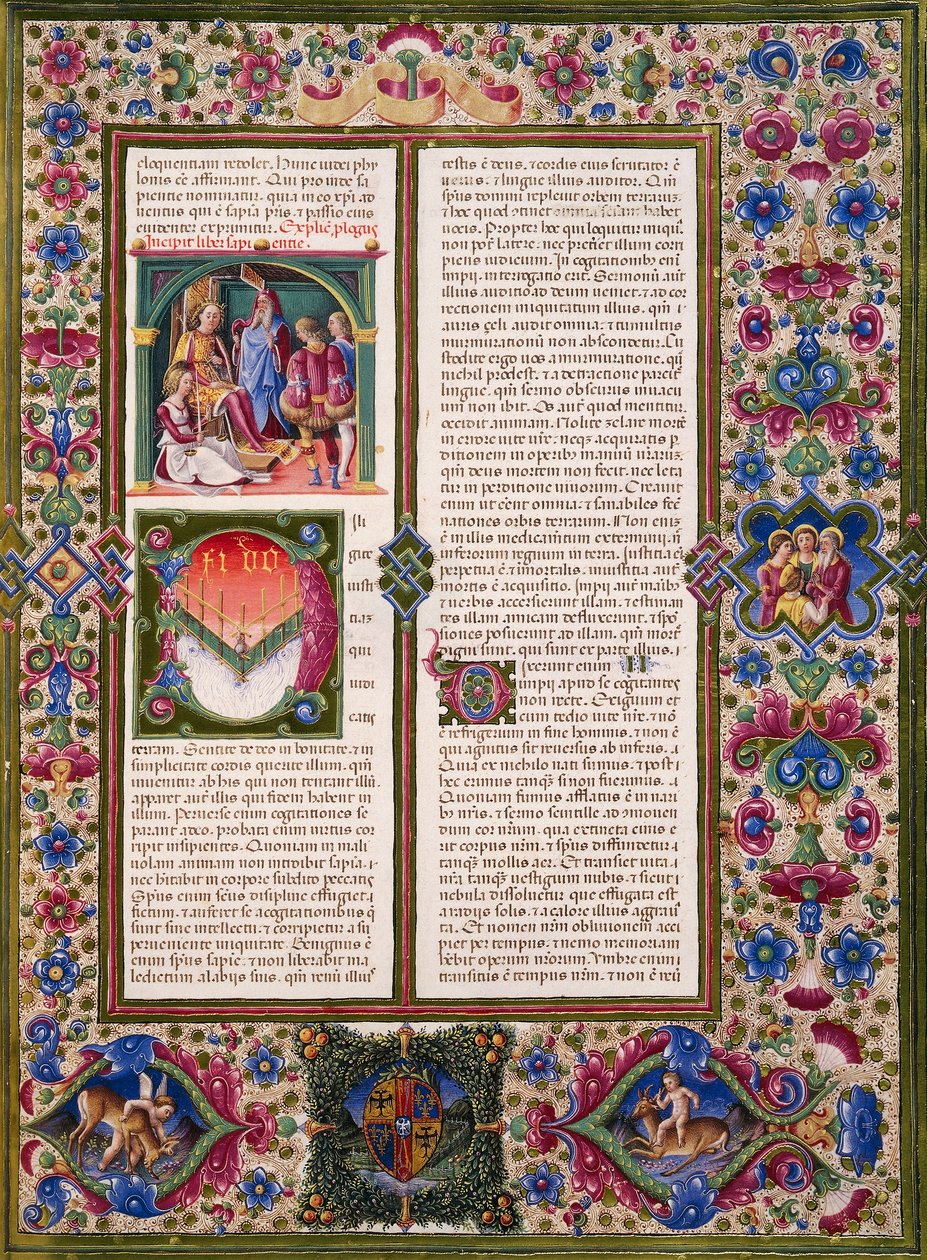 eloquentiam redolet. Hunc iudei phy
lonis eē affirmant. Qui proinde sa
pientie nominatur. quia in eo xp̄i ad
uentus qui ē sapīa pr̄is. ⁊ passio eius
euidenter exprimitur. Explic̄. plogus
Incipit liber sapi entie.
FIDO
terram. Sentite de deo in bonitate. ⁊ in
simplicitate cordis querite illum. qm̄
inuenitur ab his qui non tentant illū
apparet aut̄ illis qui fidem habent in
illum. Peruerse enim cogitationes se
parant a deo. probata enim uirtus cor
ripit insipientes. Quoniam in mali
uolam animam non introibit sapīa.
nec h̄itabit in corpore subdito peccatis
Sp̄us enim sc̄us discipline effugiet
fictum. ⁊ auferet se a cogitationibus q̄
sunt sine intellectu. ⁊ corripietur a su
perueniente iniquitate. Benignus ē
enim sp̄us sapīe. ⁊ non liberabit ma
ledictum a labijs suis. qm̄ renū illius
testis ē deus. ⁊ cordis eius scrutator ē
uerus. ⁊ lingue illius auditor. Qm̄
sp̄us domini repleuit orbem terrarum.
⁊ hoc quod continet omnia scientiam habet
uocis. Propter hoc qui loquitur iniqua
non pōt latere. nec preteriet illum corri
piens iudicium. In cogitationibus enī
impij. interrogatio erit. Sermonū aut̄
illius auditio ad deum ueniet. ⁊ ad cor
rectionem iniquitatum illius. qm̄
auris çeli audit omnia. ⁊ tumultus
murmurationū non abscondetur. Cu
stodite ergo uos a murmuratione. que
nichil prodest. ⁊ a detractione parcite
lingue. qm̄ sermo obscurus in uacu
um non ibit. Os aut̄ quod mentitur.
occidit animam. Nolite zelare mortē
in errore uite ur̄e. neq; acquiratis p̄
ditionem in operib; manuū ur̄arū.
qm̄ deus mortem non fecit. nec leta
tur in perditione uiuorum. Creauit
enim ut eēnt omnia. ⁊ sanabiles fec̄
nationes orbis terrarum. Non enī ē
in illis medicamētum exterminij. n̄
inferorum regnum in terra. Iustitia ē
perpetua ⁊ īmortalis. iniustitia aut̄
mortis ē acquisitio. Impij aut̄ manib;
⁊ uerbis accersierunt illam. ⁊ estiman
tes illam amicam defluxerunt. ⁊ spo
nsiones posuerunt ad illam. qm̄ morte
digni sunt. qui sunt ex parte illius.
Dixerunt enim II
impij apud se cogitantes
non recte. Exiguum ⁊
cum tedio uite nr̄e. ⁊ nō
ē refrigerium in fine hominis. ⁊ non ē
qui agnitus sit reuersus ab inferis.
Quia ex nichilo nati sumus. ⁊ post
hec erimus tanq; si non fuerimus.
Quoniam fumus afflatus ē in nari
b; nr̄is. ⁊ sermo scintille ad cōmouen
dum cor nr̄um. qua extincta cinis e
rit corpus nr̄m. ⁊ sp̄us diffundetur
tanq; mollis aer. Et transiet uita
nr̄a tanq; uestigium nubis. ⁊ sicut
nebula dissoluetur que effugata est
a radijs solis. ⁊ a calore illius aggraua
ta. Et nomen nr̄m obliuionem acci
piet per tempus. ⁊ nemo memoriam
h̄ebit operum nr̄orum. Vmbre enim
transitus ē tempus nr̄m. ⁊ non ē reu